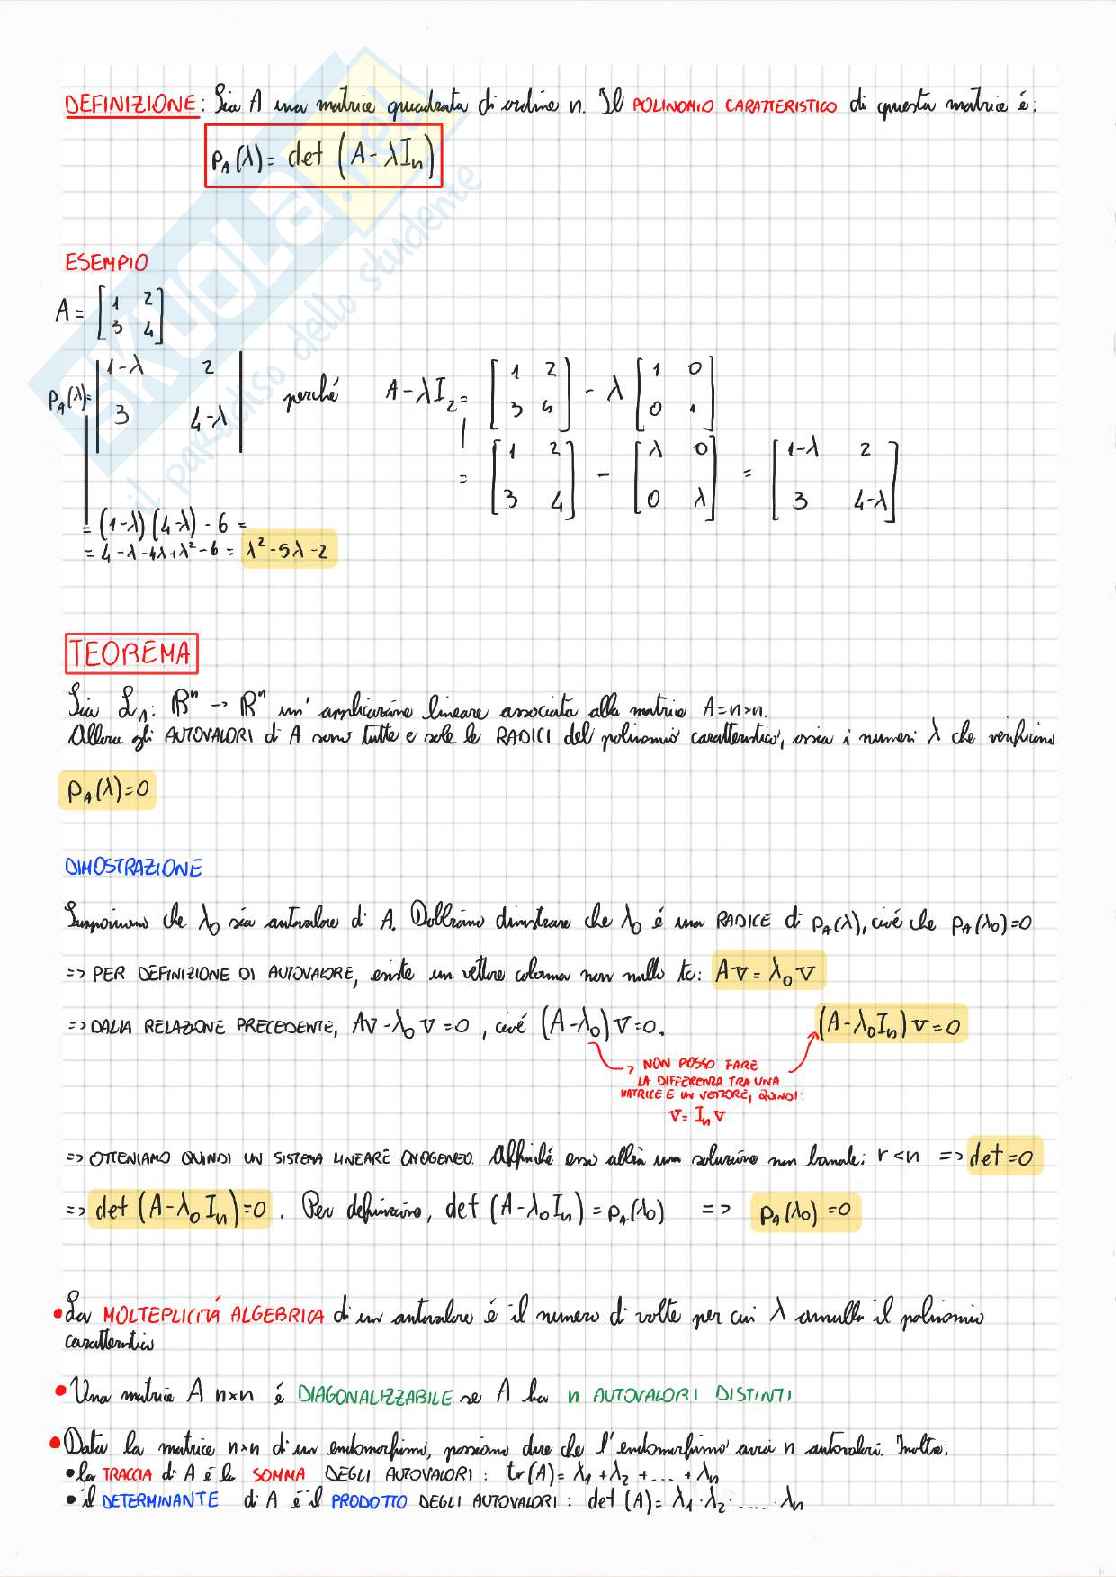 DEFINIZIONE: Sia A una matrice quadrata di ordine n. Il POLINOMIO CARATTERISTICO di questa matrice é:
p_A(λ) = det (A - λI_n)
ESEMPIO
A = [1 2
3 4]
p_A(λ) = |1-λ 2
3 4-λ| perché A - λI_2 = [1 2
3 4] - λ [1 0
0 1]
= [1 2
3 4] - [λ 0
0 λ] = [1-λ 2
3 4-λ]
= (1-λ)(4-λ) - 6 =
= 4 - λ - 4λ + λ² - 6 = λ² - 5λ - 2
TEOREMA
Sia L_A: ℝⁿ → ℝⁿ un' applicazione lineare associata alla matrice A = n×n.
Allora gli AUTOVALORI di A sono tutte e sole le RADICI del polinomio caratteristico, ossia i numeri λ che verificano
p_A(λ) = 0
DIMOSTRAZIONE
Supponiamo che λ_0 sia autovalore di A. Dobbiamo dimostrare che λ_0 é una RADICE di p_A(λ), cioé che p_A(λ_0) = 0
=> PER DEFINIZIONE DI AUTOVALORE, esiste un vettore colonna non nullo tc: Av = λ_0 v
=> DALLA RELAZIONE PRECEDENTE, Av - λ_0 v = 0, cioé (A - λ_0) v = 0. (A - λ_0 I_n) v = 0
NON POSSO FARE
LA DIFFERENZA TRA UNA
MATRICE E UN VETTORE, QUINDI:
v = I_n v
=> OTTENIAMO QUINDI UN SISTEMA LINEARE OMOGENEO. Affinché esso abbia una soluzione non banale: r < n => det = 0
=> det (A - λ_0 I_n) = 0. Per definizione, det (A - λ_0 I_n) = p_A(λ_0) => p_A(λ_0) = 0
• La MOLTEPLICITÁ ALGEBRICA di un autovalore é il numero di volte per cui λ annulla il polinomio
caratteristico
• Una matrice A n×n é DIAGONALIZZABILE se A ha n AUTOVALORI DISTINTI
• Data la matrice n×n di un endomorfismo, possiamo dire che l'endomorfismo avrá n autovalori. Inoltre.
• la TRACCIA di A é la SOMMA DEGLI AUTOVALORI: tr(A) = λ_1 + λ_2 + ... + λ_n
• il DETERMINANTE di A é il PRODOTTO DEGLI AUTOVALORI: det (A) = λ_1 · λ_2 · ..... λ_n
SKUOLA.net
il paradiso dello studente